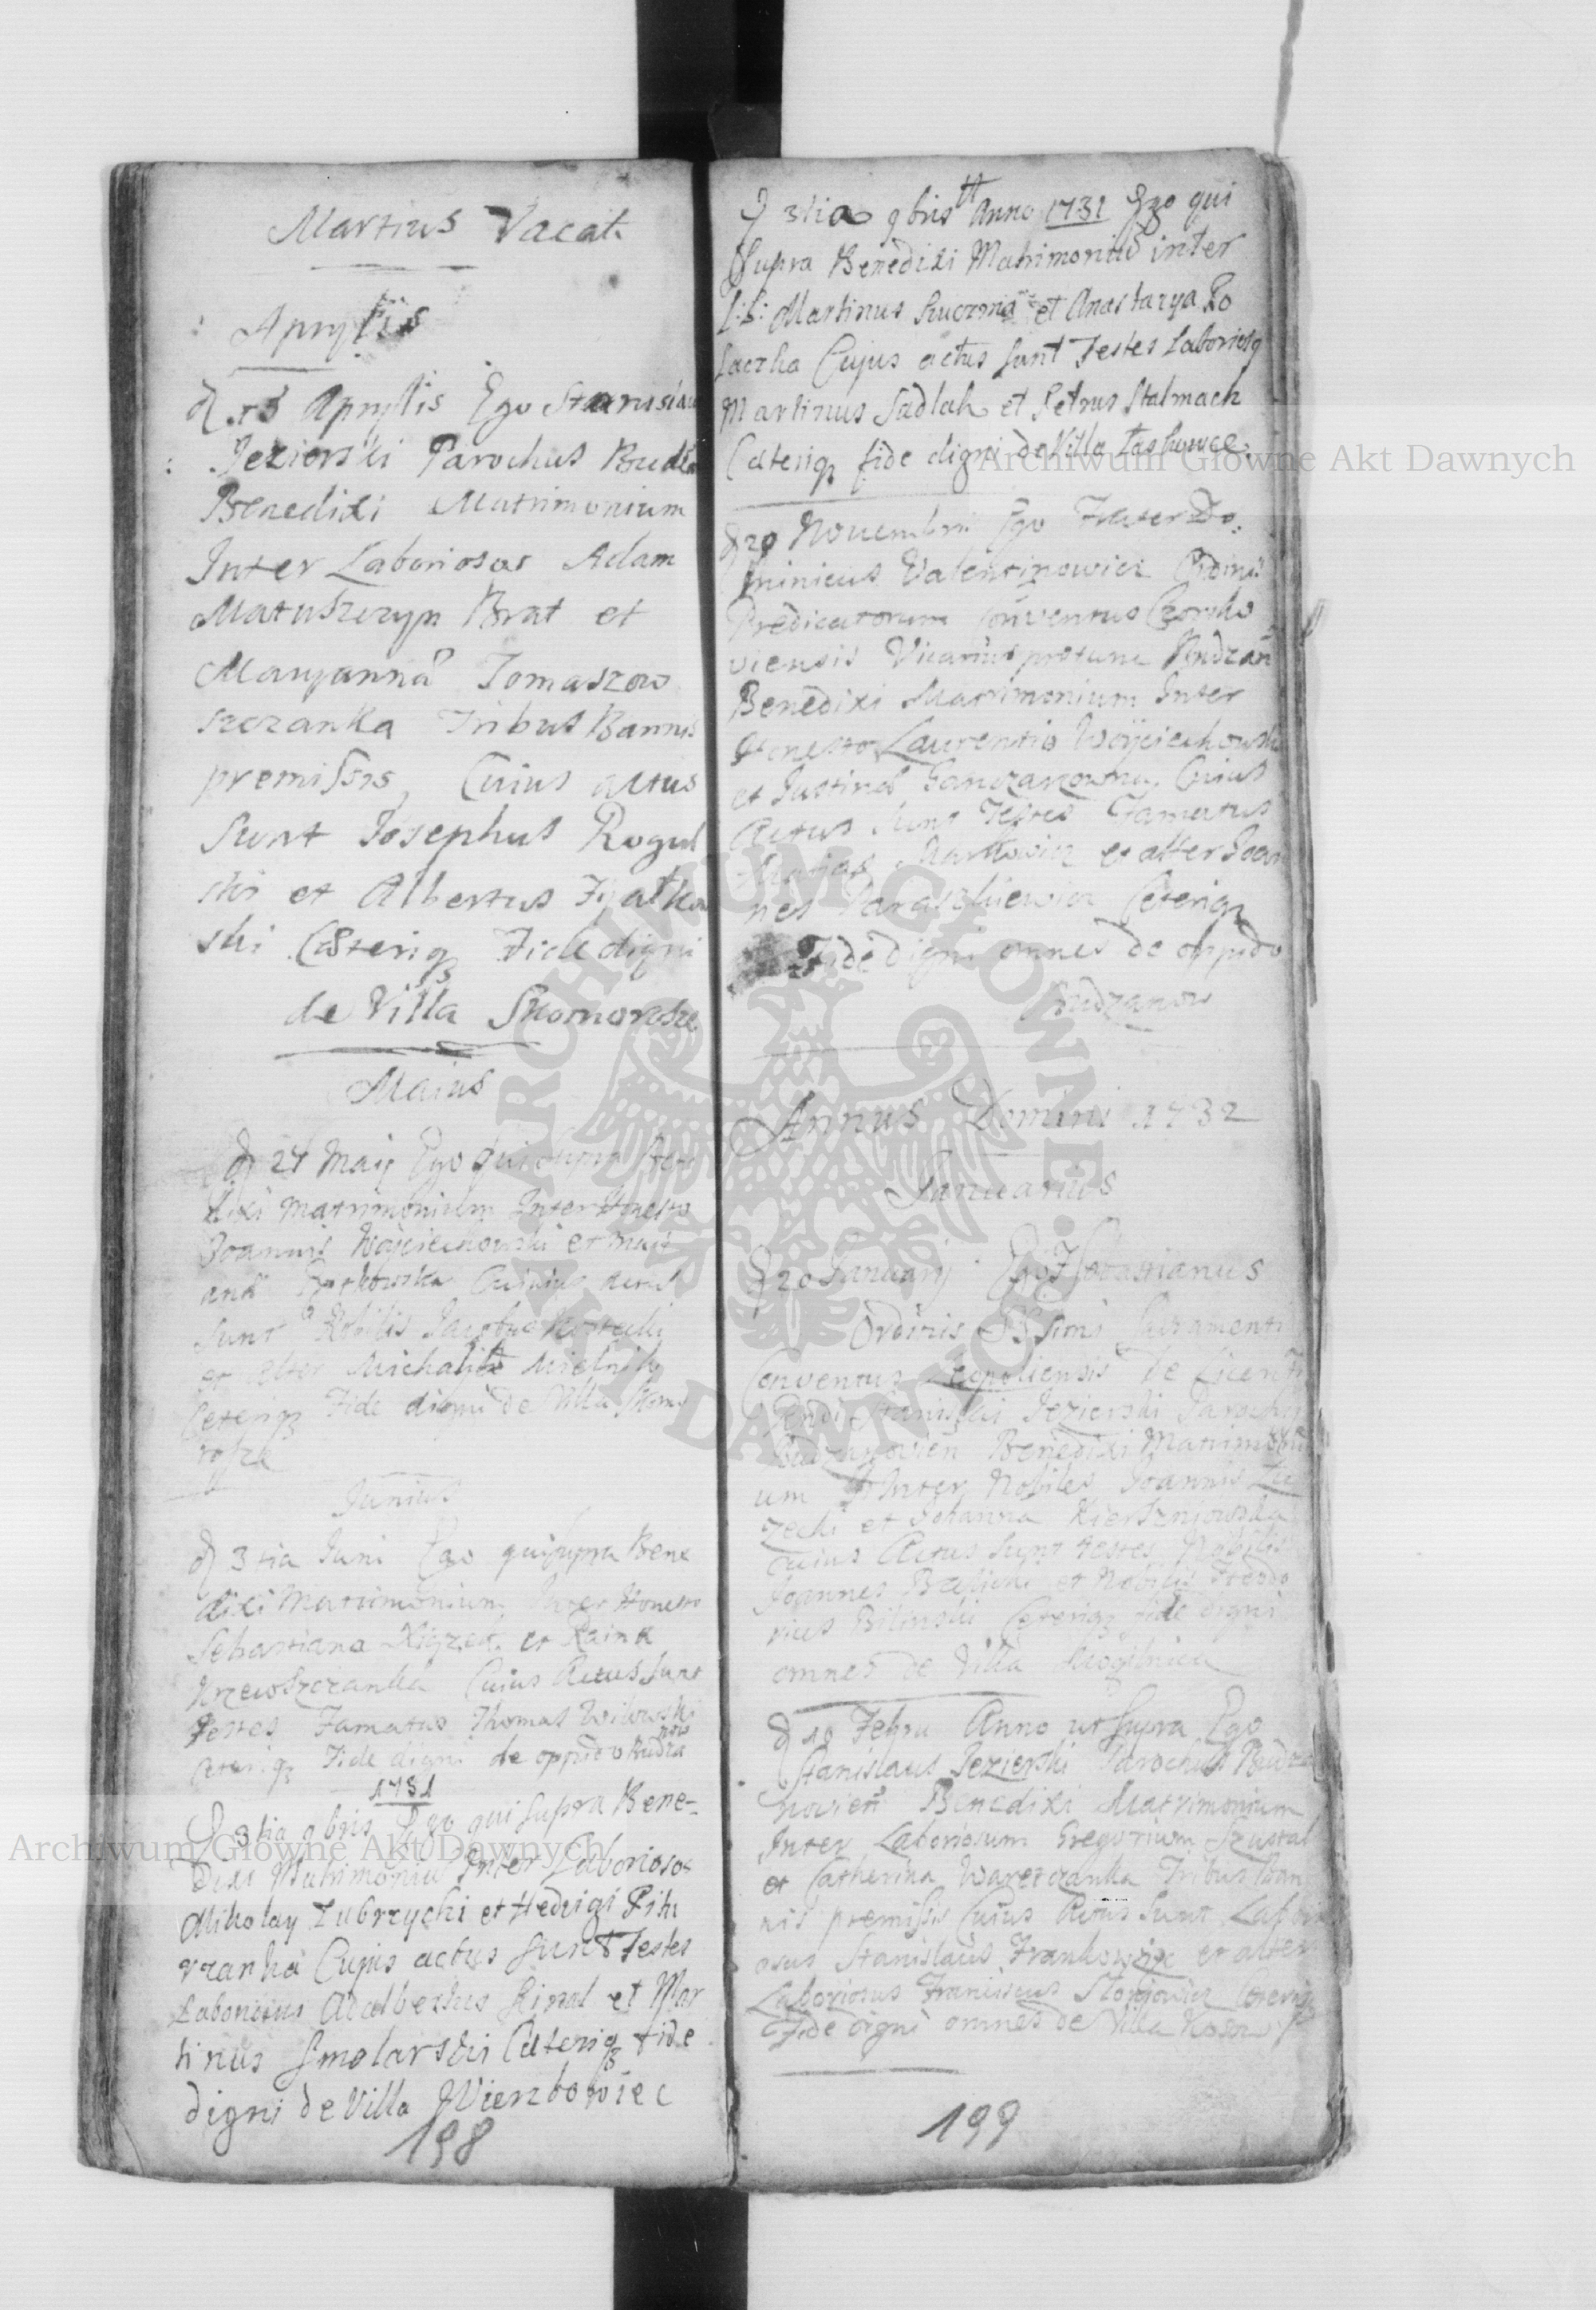 Martius Vacat
Aprylis
d 15 Aprylis Ego Stanislaus
Jezierski Parochus Budza
Benedixi Matrimonium
Inter Laboriosos Adam
Matuszczyn Brat et
Maryanna Tomaszow
szczanka Tribus Bannis
premissis, Cuius actus
sunt Josephus Rogul
ski et Albertus Fijałkow
ski Cæteriq3 Fide digni
de Villa Skomorosze
Maius
d 27 Maij Ego qui supra Bene
dixi Matrimonium Inter Honesto
Joannis Woyciechowski et
Cuius actus
sunt Nobilis Jacobus
et alter Michael Mielnik
Ceteriq3 Fide digni de Villa Skomo
rosze
Junius
d 3tia Juni Ego qui supra Bene
dixi Matrimonium Inter Honesto
Sebastiana et
Krzewszczanka Cuius Actus sunt
Testes Famatus Thomas
Ceteriq3 Fide digni de oppido Budza
now
1731
d 3tia 9bris Ego qui supra Bene-
dixi Matrimoniu Inter Laboriosos
Mikolay Zubrzycki et Hedvigi Pitu
rzanka Cujus actus sunt Testes
Laboriosus Adalbertus et Mar
tinus Smolarski Cæteriq3 fide
digni de Villa Wierzbowiec
198
d 3tia 9bris Anno 1731 Ego qui
supra Benedixi Matrimoniu inter
L:L: Martinus et Anastazya Ko
laczka Cujus actus sunt Testes Laboriosq
Martinus Sadlak et Petrus Stalmach
Cæteriq3 fide digni de Villa Laskowce.
d 20 Novembris Ego Frater Do:
minicus Valentinowicz Ordinis
Predicatorum Conventus Czortko
viensis Vicarius pro tunc Budzan
Benedixi Matrimonium Inter
Honesto Laurentio Woyciechowski
et Justina Ganczarzowna, Cuius
Actus sunt Testes Famatus
Matjas Markowicz et alter Joan
nes Paraszkiewicz Ceteriq3
Fide digni omnes de oppido
Budzanow
Annus Domini 1732
Januarius
d 20 January Ego F Sebastianus
Ordinis SSsimi Sacramenti
Conventus Leopoliensis de Licentia
Rendi Stanislai Jezierski Parochi
Budzanovien Benedixi Matrimoni
um Inter Nobiles Joannis
et Johanna
cuius Actus sunt testes Nobilis
Joannes et Nobilis Fredo
ricus Bilinski Ceteriq3 fide digni
omnes de Villa Mogilnica
d 10 Febru Anno ut supra Ego
Stanislaus Jezierski Parochus Budza
novien Benedixi Matrimonium
Inter Laboriosum Gregorium Szustal
et Catherina Tribus Ban
nis premissis Cuius Actus sunt Labori
osus Stanislaus Frankowicz et alter
Laboriosus Franciscus Ceteriq3
Fide digni omnes de Villa Kosow
199
Archiwum Główne Akt Dawnych
Archiwum Główne Akt Dawnych
ARCHIWUM GŁÓWNE • AKT DAWNYCH •